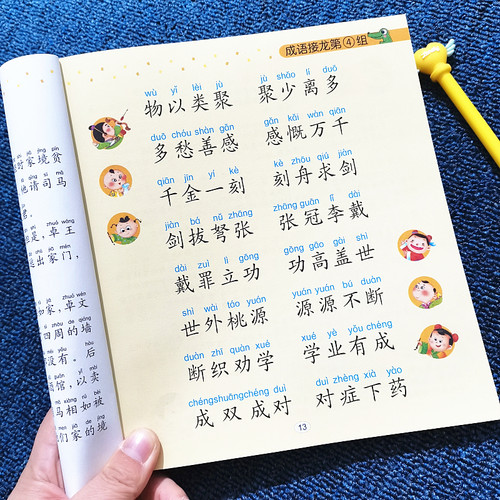 成语接龙第④组
wù yǐ lèi jù jù shǎo lí duō
物以类聚 聚少离多
duō chóu shàn gǎn gǎn kǎi wàn qiān
多愁善感 感慨万千
qiān jīn yí kè kè zhōu qiú jiàn
千金一刻 刻舟求剑
jiàn bá nǔ zhāng zhāng guān lǐ dài
剑拔弩张 张冠李戴
dài zuì lì gōng gōng gāo gài shì
戴罪立功 功高盖世
shì wài táo yuán yuán yuán bú duàn
世外桃源 源源不断
duàn zhī quàn xué xué yè yǒu chéng
断织劝学 学业有成
chéngshuāngchéng duì duì zhèng xià yào
成双成对 对症下药
13
时家境贫
他请司马
是，卓王
出家门，
如家，卓文
四周的墙
没有。后
酒馆，以卖
马相如被
们家的境